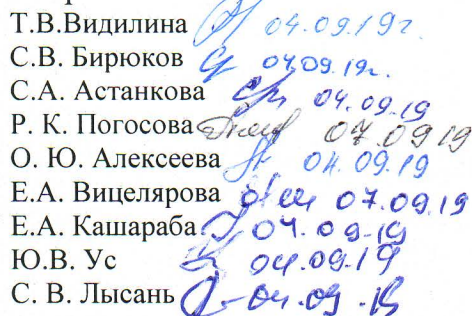 Т.В.Видилина 04.09.19г.
С.В. Бирюков 04.09.19г.
С.А. Астанкова 04.09.19
Р. К. Погосова 07.09 19
О. Ю. Алексеева 04.09.19
Е.А. Вицелярова 07.09.19
Е.А. Кашараба 04.09.19
Ю.В. Ус 04.09.19
С. В. Лысань 04.09.19